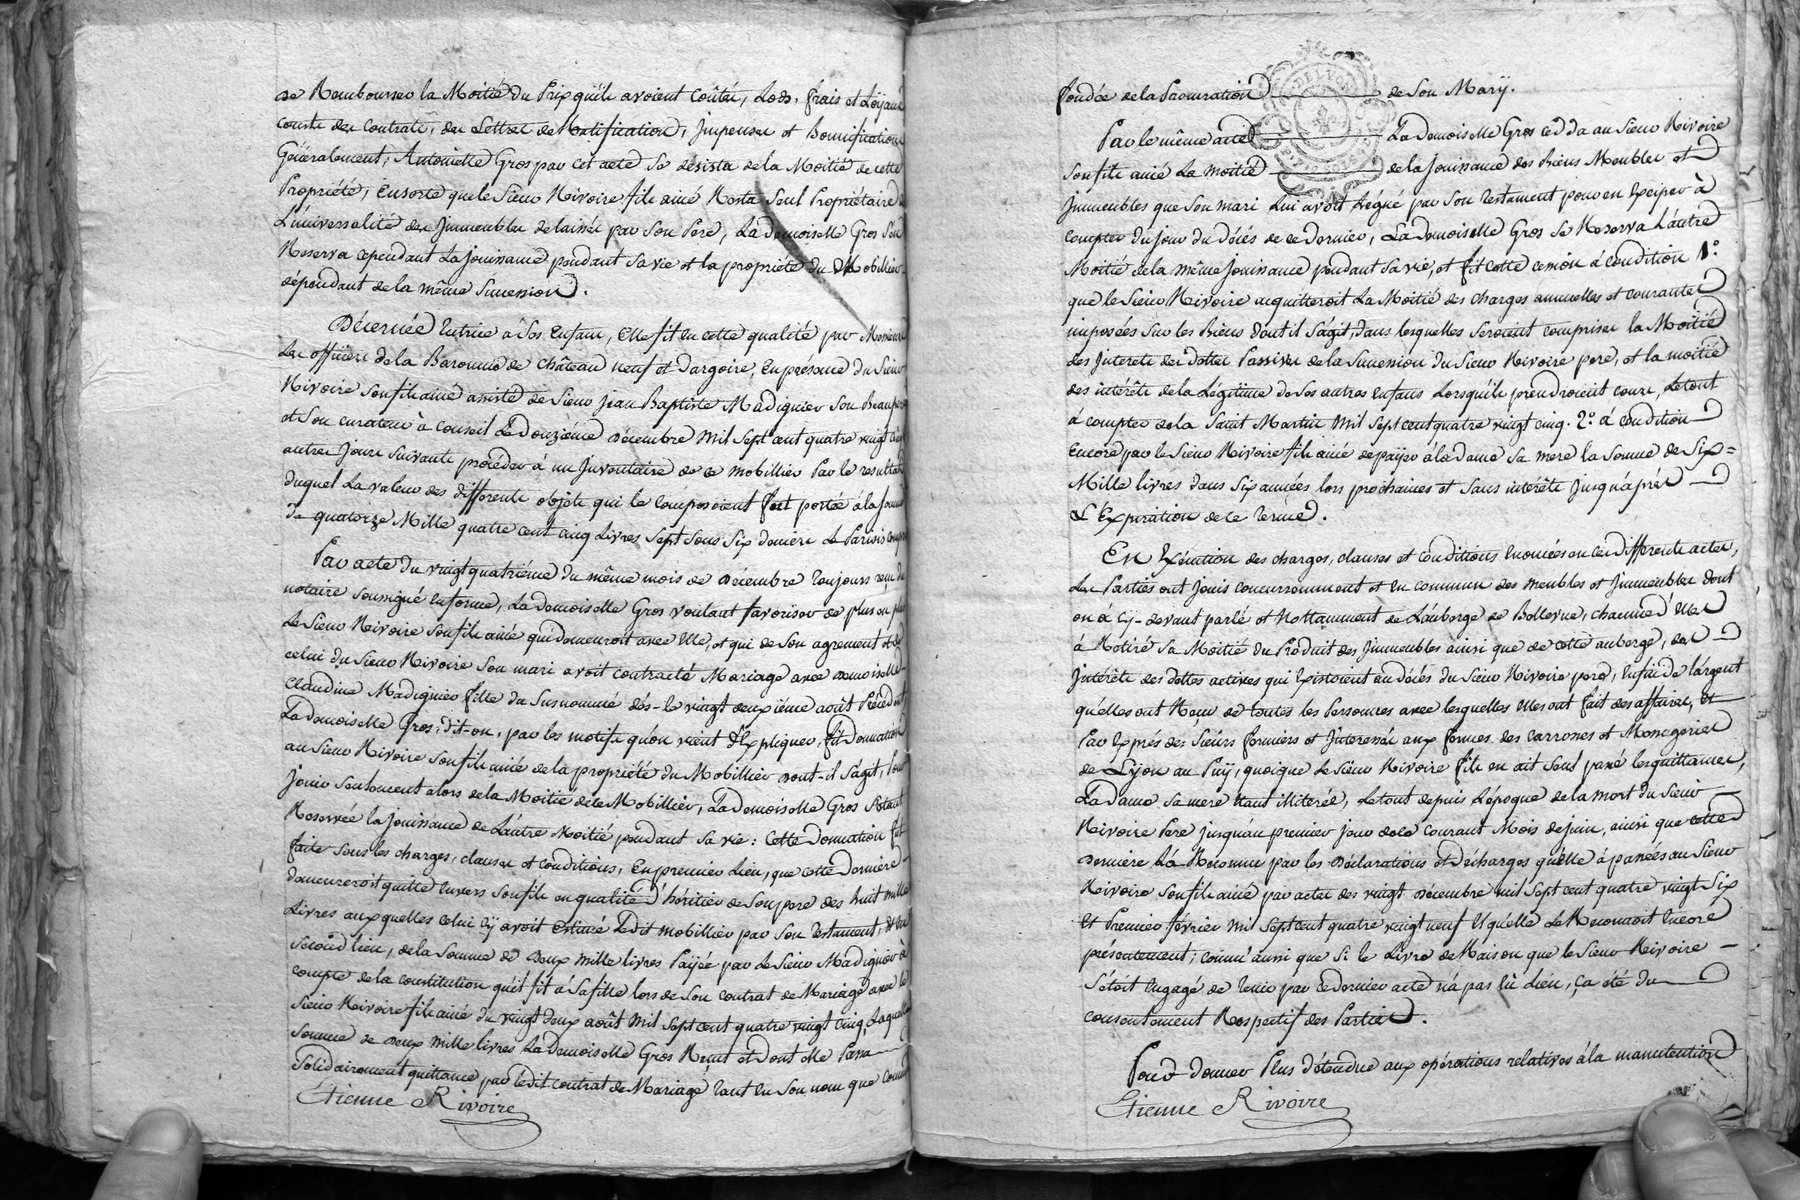 de Rembourser la Moitié du Prix qu'ils avoient coûtés, Lods, frais et Loÿaux
couste des contrats, des Lettres de Ratification, Impenses et Bonnifications
Généralement, Antoinette Gros par cet acte se désista de la Moitié de cette
Propriété, Ensorte que le Sieur Rivoire fils ainé Resta Seul Propriétaire de
L'universalité des Immeubles delaissés par Son Pere, La Demoiselle Gros S'en
Reserva cependant La Jouissance pendant Sa vie et la propriété du Mobillier
dépendant de la même Succession.
Décernée tutrice à Ses Enfans, Elle fit en cette qualité par Messieurs
Les officiers de la Baronnie de Château neuf et Dargoire, En présence du Sieur
Rivoire Son fils ainé assisté de Sieur Jean Baptiste Madignier Son Beaupere
et Son curateur à conseil Le Douzième Décembre Mil Sept cent quatre vingt cinq
autres Jours Suivants procéder à un Inventaire de ce mobillier Par le resultat
duquel La valeur des differents objets qui le composoient fut portée à la Somme
de quatorze Mille quatre cent cinq Livres Sept Sous Six deniers Le Parisis compris
Par acte du vingt quatrième du même mois de Décembre Toujours reçu du
notaire Soussigné en forme, La demoiselle Gros voulant favoriser de plus en plus
Le Sieur Rivoire Son fils ainé qui demeuroit avec Elle, et qui de Son agrement et de
celui du Sieur Rivoire Son mari avoit contracté Mariage avec demoiselle
Claudine Madignier fille du Susnommé dès-le vingt deuxième août Précédent
La demoiselle Gros, dit-on, par les motifs qu'on vient d'Expliquer, fit Donnation
au Sieur Rivoire Son fils ainé de la propriété du Mobillier dont-il S'agit, Pour
Jouir Seulement alors de la Moitié de ce Mobillier, La demoiselle Gros S'étant
Reservée la Jouissance de L'autre Moitié pendant Sa vie : Cette Donnation fut
faite Sous les charges, clauses et conditions, En premier Lieu, que cette Dernière
demeureroit quitte Envers Son fils en qualité d'héritier de Son pere des huit mille
Livres auxquelles celui cÿ avoit Estimé Ledit mobillier par Son testament, Et en
Second lieu, de la Somme de Deux Mille livres Païée par Le Sieur Madignier à
compte de la constitution qu'il fit à Sa fille lors de Son contrat de Mariage avec le
Sieur Rivoire fils ainé du vingt deux août Mil Sept cent quatre vingt cinq, Laquelle
Somme de Deux Mille livres La Demoiselle Gros Reçut et dont elle Passa
Solidairement quittance par ledit contrat de Mariage tant en Son nom que comme
Étienne Rivoire
fondée de la Procuration de Son Marÿ.
Par le même acte La demoiselle Gros ceda au Sieur Rivoire
Son fils ainé La moitié de la Jouissance des Biens Meubles et
Immeubles que Son mari Lui avoit Légué par Son testament pour en Exciper à
compter du Jour du décés de ce dernier, La Demoiselle Gros Se Reserva L'autre
Moitié de la même Jouissance pendant Sa vie, et fit cette cession à condition 1°.
que le Sieur Rivoire acquitteroit La Moitié des charges annuelles et courantes
imposées Sur les Biens dont il S'agit, dans lesquelles Seroient comprises la Moitié
des Interets des dettes Passives de la Succession du Sieur Rivoire pere, et la moitié
des intérêts de la Légitime de Ses autres enfans Lorsqu'ils prendroient cours, Le tout
à compter de la Saint Martin Mil Sept cent quatre vingt cinq. 2°. à condition
Encore par le Sieur Rivoire fils ainé de païer à la Dame Sa mere la Somme de Six=
Mille livres dans Six années lors prochaines et Sans intérêts Jusqu'après
L'Expiration de ce terme.
En Exécution des charges, clauses et conditions Enoncées en ces differents actes,
Les Parties ont Joüis concurremment et en commun des meubles et Immeubles dont
on à Cÿ-devant parlé et Nottamment de L'auberge de Bellevue, chacune d'elles
à Retiré Sa Moitié du Produit des Immeubles ainsi que de cette auberge, des
Intérêts des dettes actives qui Existoient au décés du Sieur Rivoire pere, Enfin de l'argent
qu'elles ont Reçu de toutes les Personnes avec lesquelles Elles ont fait des affaires, et
Par Exprès des Sieurs fermiers et Interessés aux fermes des Carrosses et Messageries
de Lÿon au Puÿ, quoique Le Sieur Rivoire fils en ait Seul passé les quittances,
La Dame Sa mere étant illiterée, Le tout depuis L'époque de la mort du Sieur
Rivoire Pere Jusqu'au premier Jour de ce Courant Mois de Juin, ainsi que cette
Dernière L'à Reconnu par les Déclarations et décharges qu'elle à passées au Sieur
Rivoire Son fils ainé par actes des vingt Décembre mil Sept cent quatre vingt Six
Et Premier février Mil Sept cent quatre vingt neuf Et qu'elle Le Reconnoit Encore
présentement ; comm'aussi que Si le Livre de Maison que le Sieur Rivoire
S'étoit Engagé de tenir par ce dernier acte n'à pas Eü Lieu, Ça été du
consentement Respectif des Parties.
Pour donner Plus d'étendue aux opérations relatives à la manutention
Étienne Rivoire